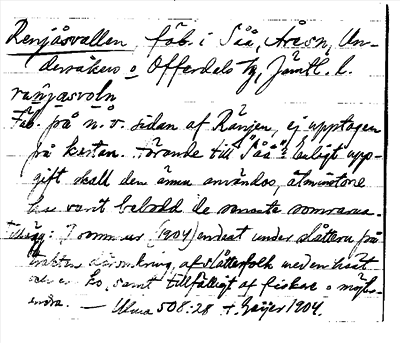 Renjåsvallen, fäb. i Såå, Åresn, Un-
dersåkers o Offerdals tg, Jämtl. l.
ranjasvoln
Fäb. på n.v. sidan af Rånjen, ej upptagen
på kartan. Hörande till Såå. Enligt upp-
gift skall den ännu användas, åtminstone
har varit bebodd de senaste somrarna.
Tillägg: I sommar (1904) endast under slåttern på
trakten däromkring, af slåtterfolk med en häst
och en ko, samt tillfälligt af fiskare o
andra. — Ulma 508:28 + Geijer 1904.